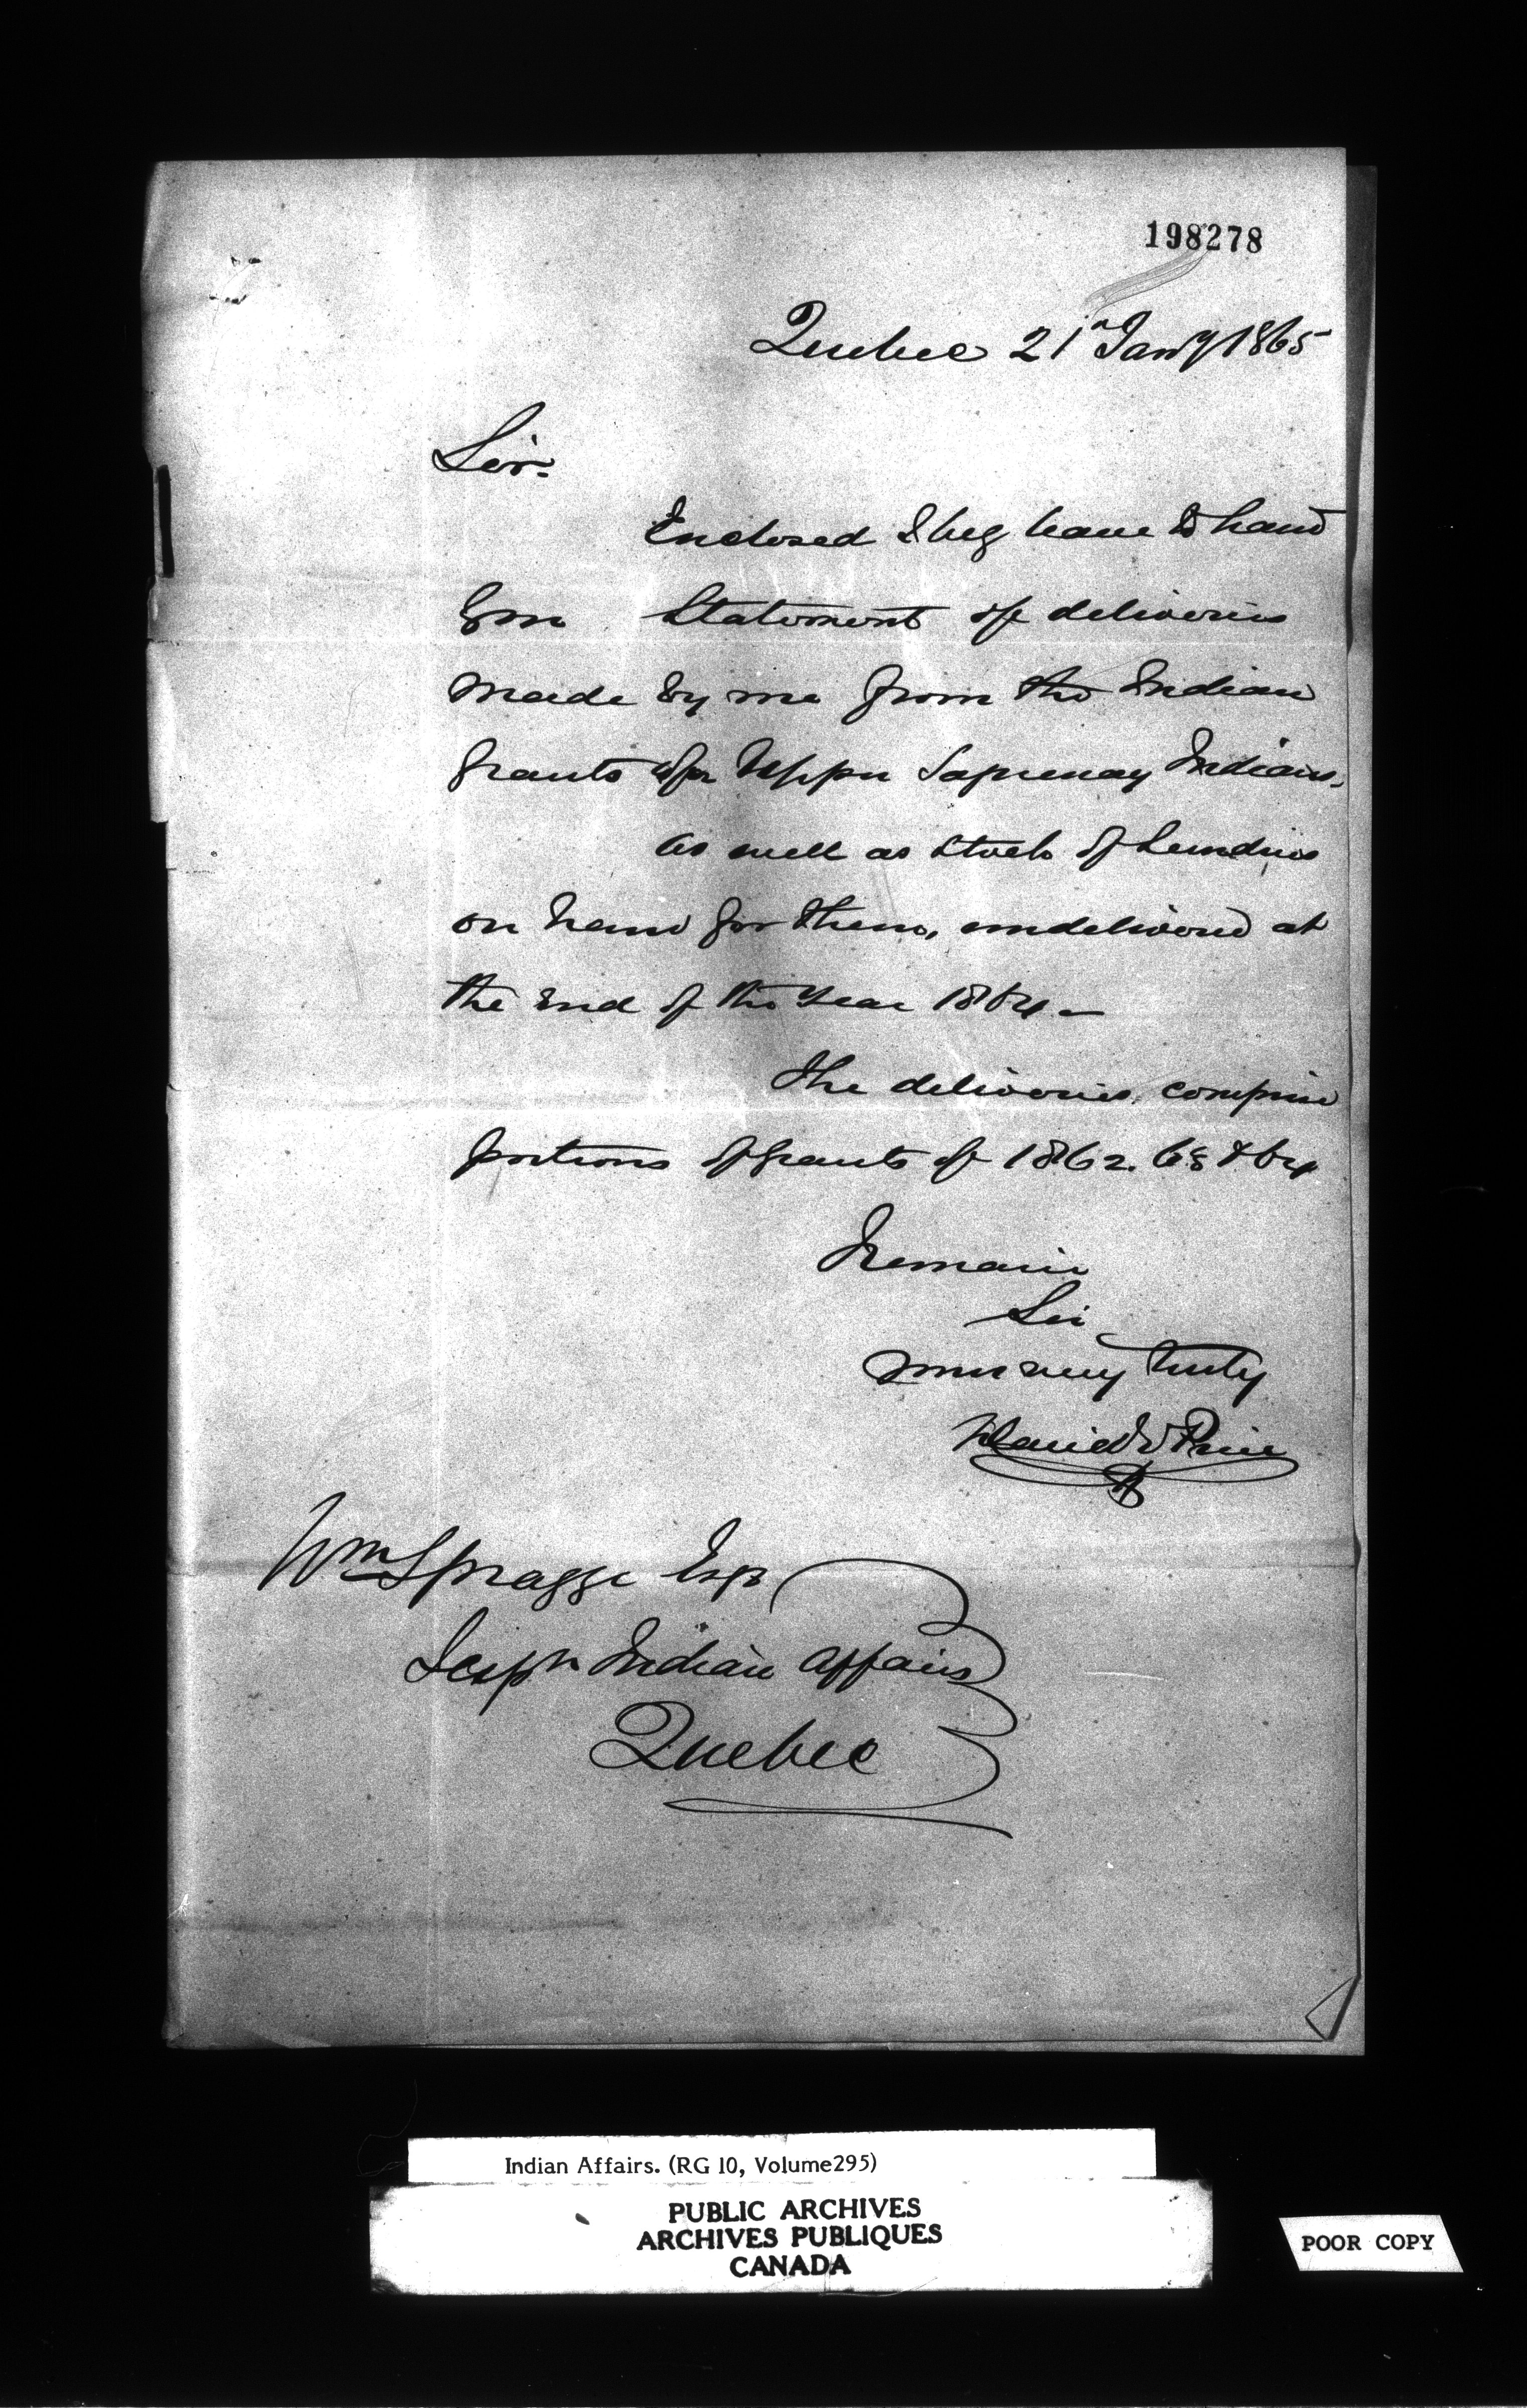 198278
Quebec 21st Jany 1865
Sir.
Enclosed I beg leave to hand
you Statement of deliveries
made by me from the Indian
Grants for Upper Saguenay Indians,
as well as Stock of Sundries
on hand for them, undelivered at
the End of the Year 1864.—
The deliveries comprise
portions of Grants of 1862. 63 & 64
I remain
Sir
Yours very truly
David E Price
Wm Spragge Esqr
Indian Affairs
Quebec
Indian Affairs. (RG 10, Volume295)
PUBLIC ARCHIVES
ARCHIVES PUBLIQUES
CANADA
POOR COPY